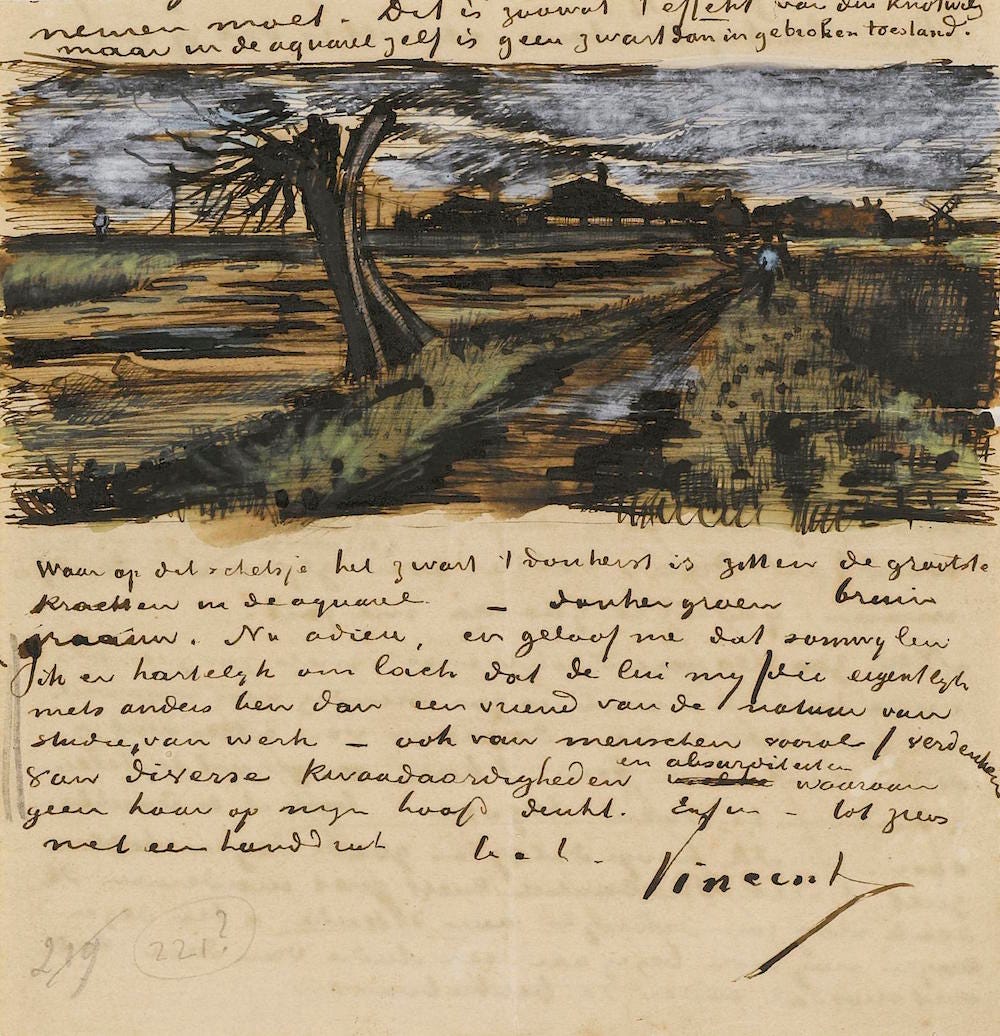 nemen moet. Dit is zoowat 't effekt van den knotwilg
maar in de aquarel zelf is geen zwart dan in gebroken toestand.
Waar op dit schetsje het zwart 't donkerst is zitten de grootste
krachten in de aquarel – donkergroen bruin
graauw. Nu adieu, en geloof me dat somwylen
ik er hartelyk om lach dat de lui my (die eigentlyk
niets anders ben dan een vriend van de natuur van
studie, van werk – ook van menschen vooral) verdenken
van diverse kwaadaardigheden en absurditeiten waaraan
geen haar op myn hoofd denkt. Enfin – tot ziens
met een handdruk
Vincent
219 221?